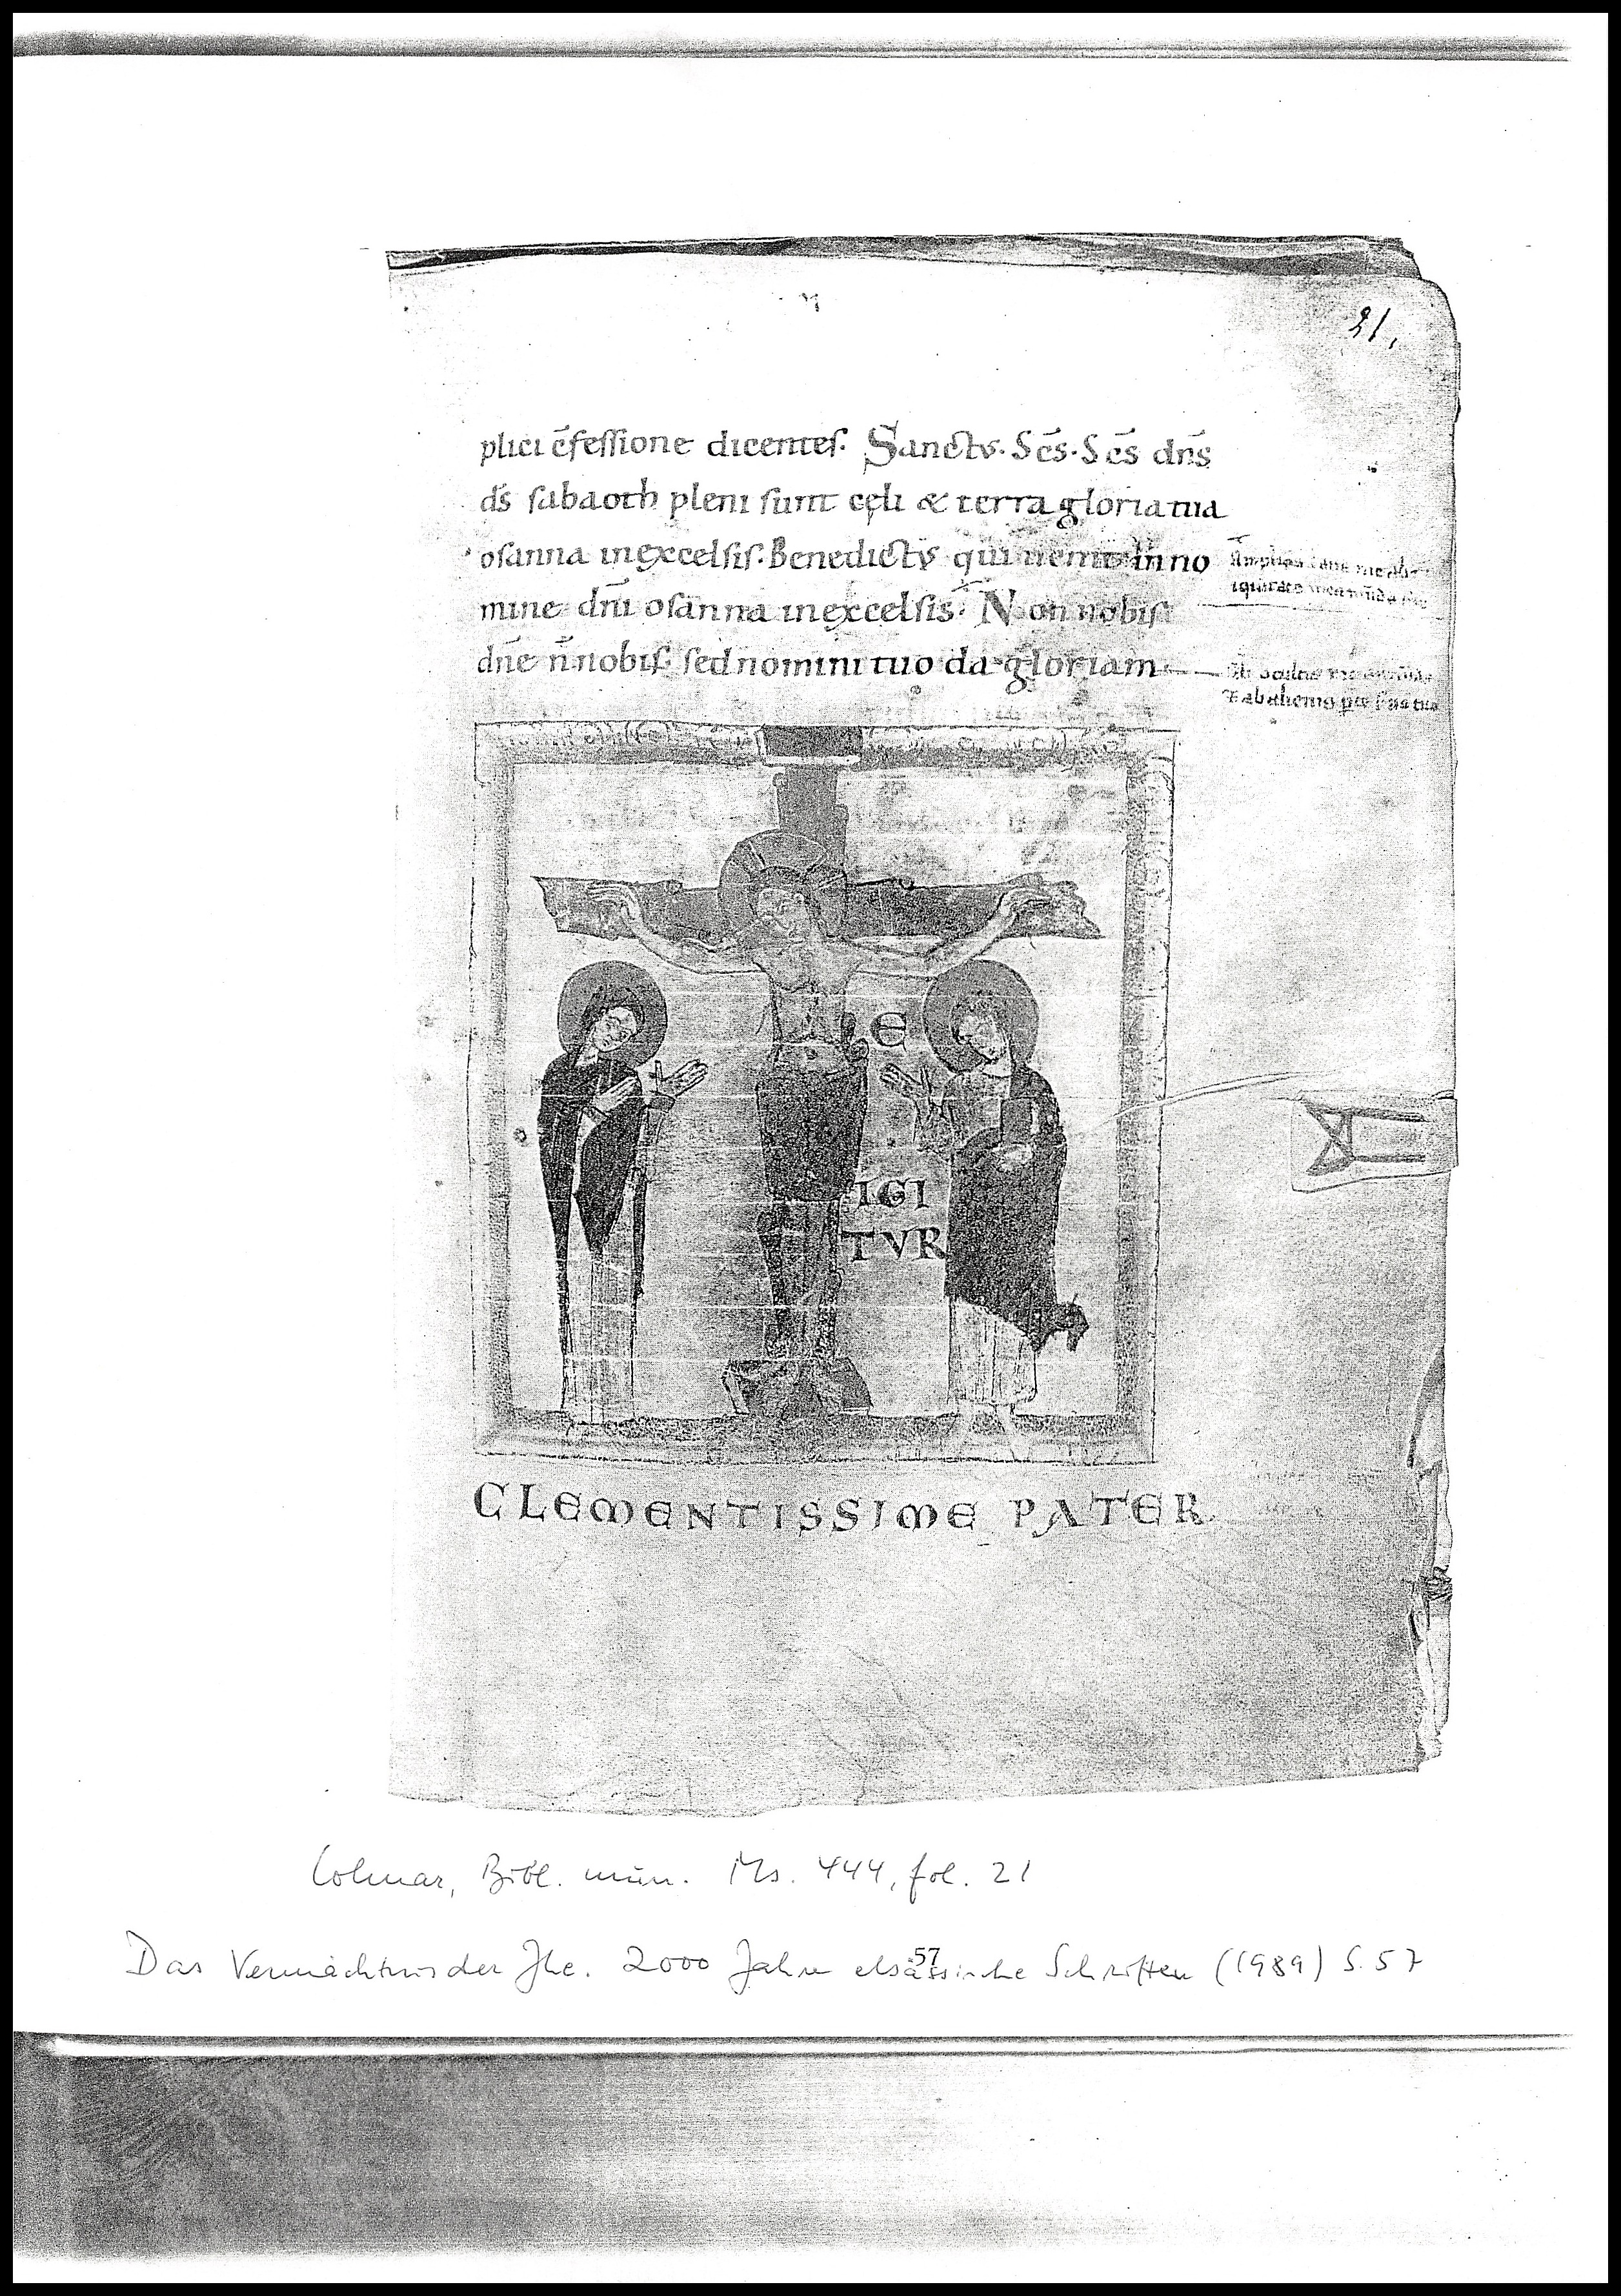 21,
plici c̄feſſione dicenteſ. Sanctvs. Sc̄s. Sc̄s dn̄s
ds̄ ſabaoth pleni ſunt cęli & terra gloria tua
oſanna inexcelſiſ. Benedictvs qui uenit in no
mine dn̄i oſanna in excelſis. Non nobiſ
dn̄e n̄ nobiſ. ſed nomini tuo da gloriam
Amplius laua me ab
E
IGI
TVR
CLEMENTISSIME PATER
Colmar, Bibl. mun. Ms. 444, fol. 21
57
Das Vermächtnis der Jhe. 2000 Jahre elsässische Schriften (1989) S. 57